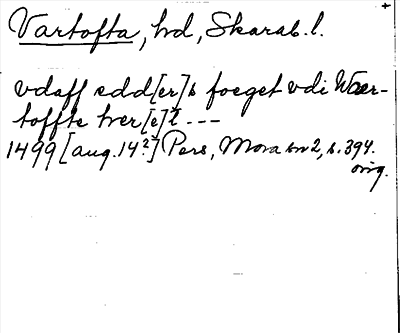 Vartofta, hd, Skarab. l.
vdaff edd[er]s foeget vdi Wær-
toffte hrer[e]t ---
1499 [aug. 14?] Pers, Mora sn 2, s. 394.
orig.